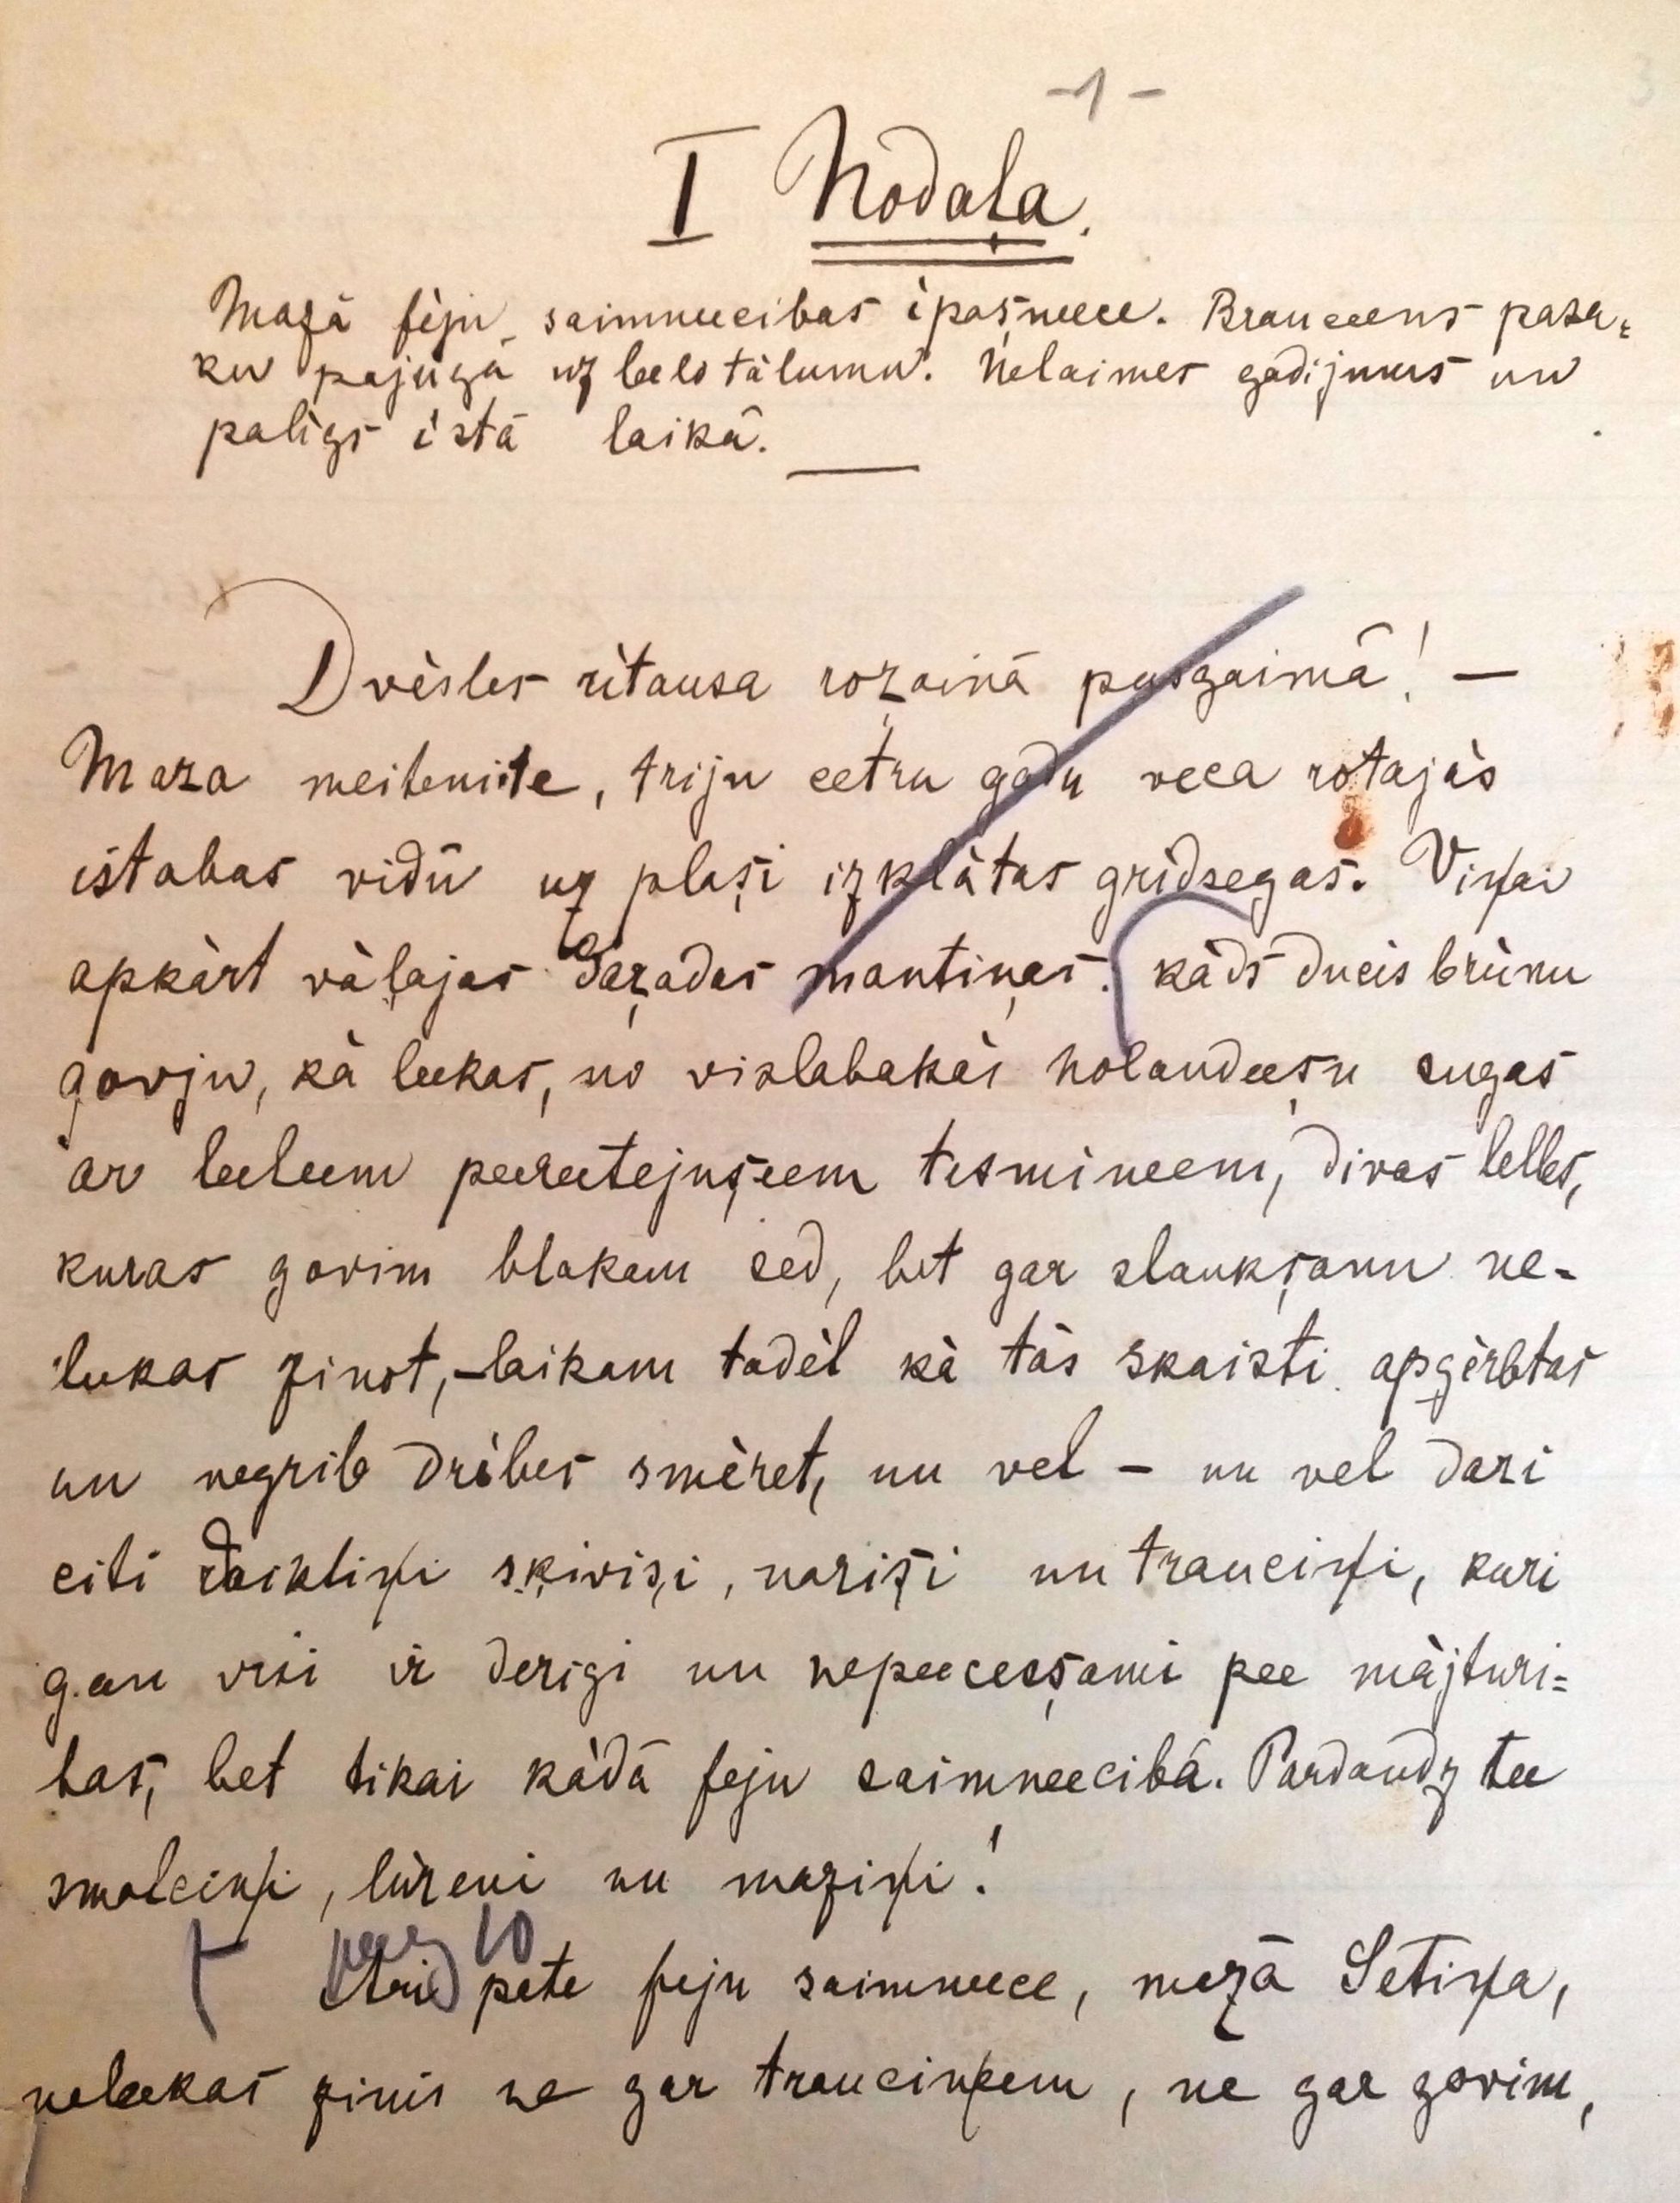 -1-
I Nodaļa.
Mazā feju saimneecibas ipaşneece. Brauceens pasa=
ku pajūgā uz leelo tālumu. Nelaimes gadijums un
paligs istā laikā.
Dvèsles rītausa rozainā pusgaismā! —
Maza meitenite, triju cetru gadu veca rotajàs
istabas vidū uz plaşi izklàtas grìdsegas. Viņai
apkàrt vàļajas daz̧adas mantiņas. kàds ducis brùnu
govju, kà leekas, no vislabakàs holandeeşu sugas
ar leeleem peereetejuşeem tesmineem, divas lelles,
kuras govim blakam sed, bet gar slaukşanu ne-
leekas zinot, – laikam tadèļ kà tàs skaisti apģèrbtas
un negrib drèbes smèret, un vel – un vel dazi
citi daiktiņi şkivişi, narişi un trauciņi, kuri
gan visi ir derigi un nepeeceeşami pee màjturi=
bas, bet tikai kàdā feju saimneecibà. Pardaudz tee
smalciņi, lùreni un maziņi!
10
Ari pate feju saimneece, mazā Setiņa,
neleekas zinis ne gar trauciņeem, ne gar govim,